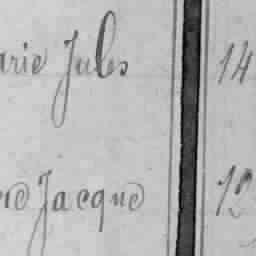 arie Jules 14
re Jacque 12